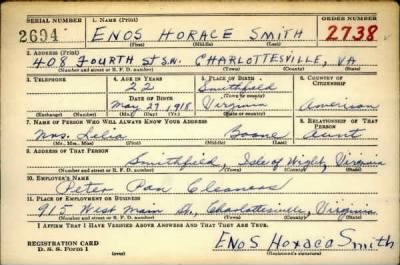 SERIAL NUMBER 1. NAME (Print) ORDER NUMBER
2694 ENOS HORACE SMITH 2738
(First) (Middle) (Last)
2. ADDRESS (Print)
408 FOURTH ST S.W. CHARLOTTESVILLE, VA
(Number and street or R. F. D. number) (Town) (County) (State)
3. TELEPHONE 4. AGE IN YEARS 5. PLACE OF BIRTH 6. COUNTRY OF CITIZENSHIP
22 Smithfield
DATE OF BIRTH (Town or county)
May 27, 1918 Virginia American
(Exchange) (Number) (Mo.) (Day) (Yr.) (State or country)
7. NAME OF PERSON WHO WILL ALWAYS KNOW YOUR ADDRESS 8. RELATIONSHIP OF THAT PERSON
Mrs. Lelia Boone Aunt
(Mr., Mrs., Miss) (First) (Middle) (Last)
9. ADDRESS OF THAT PERSON
Smithfield, Isle of Wight, Virginia
(Number and street or R. F. D. number) (Town) (County) (State)
10. EMPLOYER'S NAME
Peter Pan Cleaners
11. PLACE OF EMPLOYMENT OR BUSINESS
915 West Main St., Charlottesville, Virginia
(Number and street or R. F. D. number) (Town) (County) (State)
I AFFIRM THAT I HAVE VERIFIED ABOVE ANSWERS AND THAT THEY ARE TRUE.
REGISTRATION CARD
D. S. S. Form 1
Enos Horace Smith
(Registrant's signature)